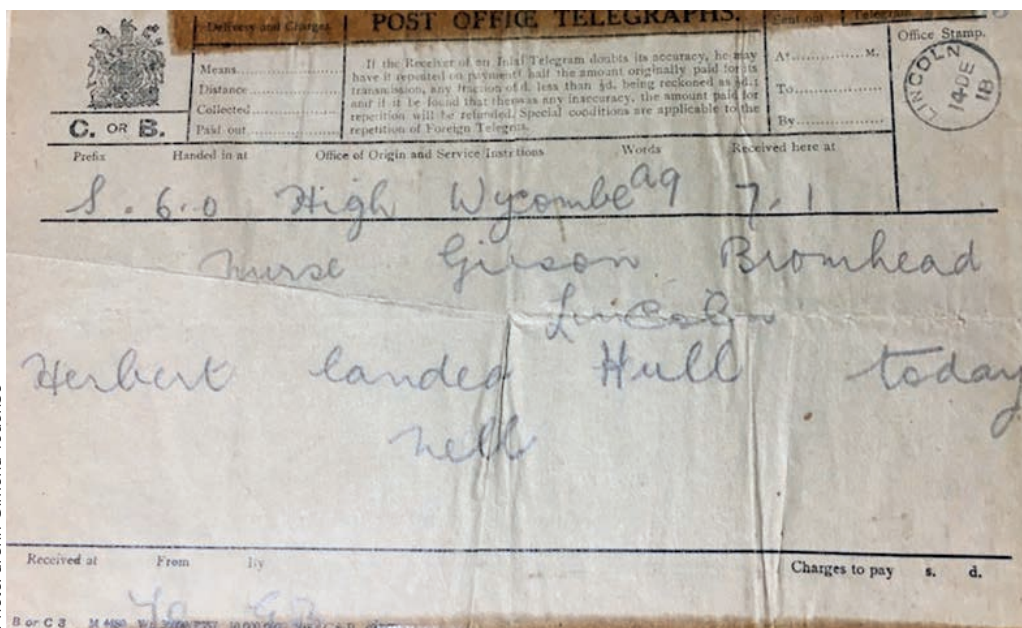 POST OFFICE TELEGRAPHS.
Delivery and Charges
Sent out
Office Stamp.
Means
Distance
Collected
Paid out
If the Receiver of an Inland Telegram doubts its accuracy, he may
have it repeated on payment half the amount originally paid for its
transmission, any fraction of d. less than ½d. being reckoned as ½d.;
and if it be found that there was any inaccuracy, the amount paid for
repetition will be refunded. Special conditions are applicable to the
repetition of Foreign Telegms.
At M.
To
By
LINCOLN
14 DE
18
C. OR B.
Prefix Handed in at Office of Origin and Service Instructions Words Received here at
S. 6.0 High Wycombe 7.1
Nurse Gibson Bromhead
Lincoln
Herbert landed Hull today
Nell
Received at From By Charges to pay s. d.
B or C 3